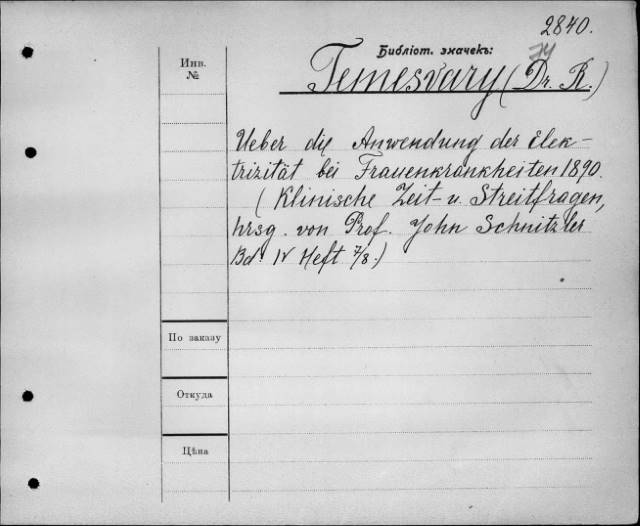 2840.
Библіот. значекъ:
Инв.
№
Temesvary (Dr. R.)
Ueber die Anwendung der Elek-
trizität bei Frauenkrankheiten 1890.
(Klinische Zeit- u. Streitfragen,
hrsg. von Prof. John Schnitzler
Bd. IV Heft 7/8.)
По заказу
Откуда
Цѣна